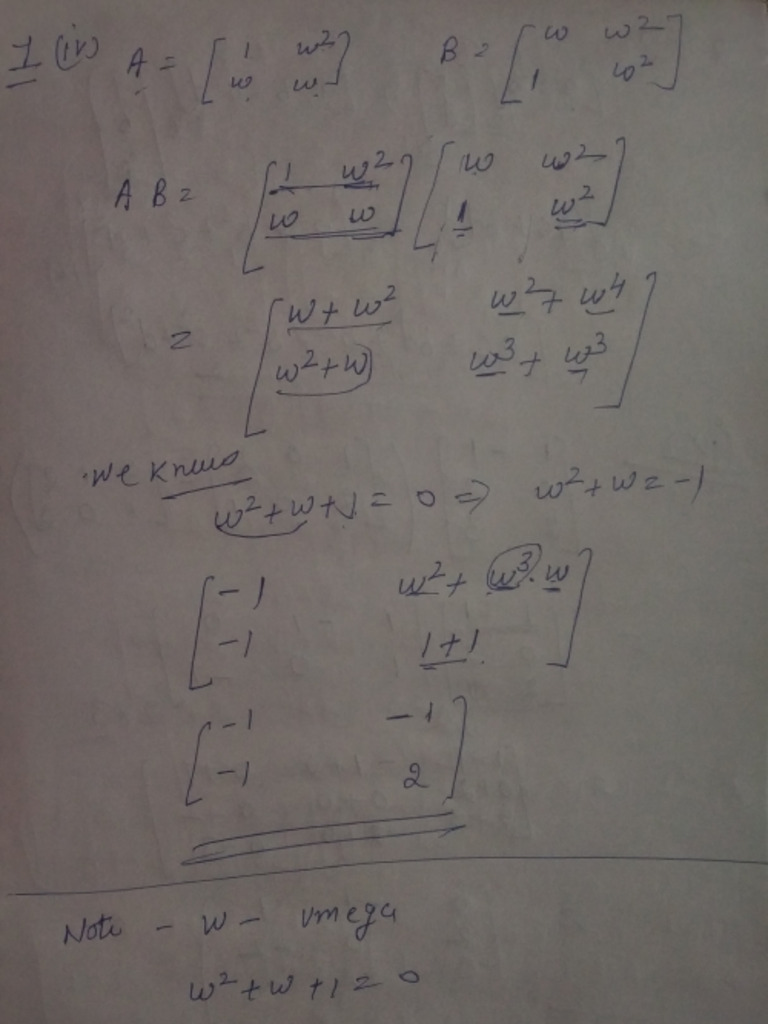 1 (iv) A = [ 1 w² ] B = [ w w² ]
[ w w ] [ 1 w² ]
A B = [ 1 w² ] [ w w² ]
[ w w ] [ 1 w² ]
= [ w + w² w² + w⁴ ]
[ w² + w w³ + w³ ]
We know
w² + w + 1 = 0 ⇒ w² + w = -1
[ -1 w² + w³. w ]
[ -1 1 + 1 ]
[ -1 -1 ]
[ -1 2 ]
Note - w - omega
w² + w + 1 = 0